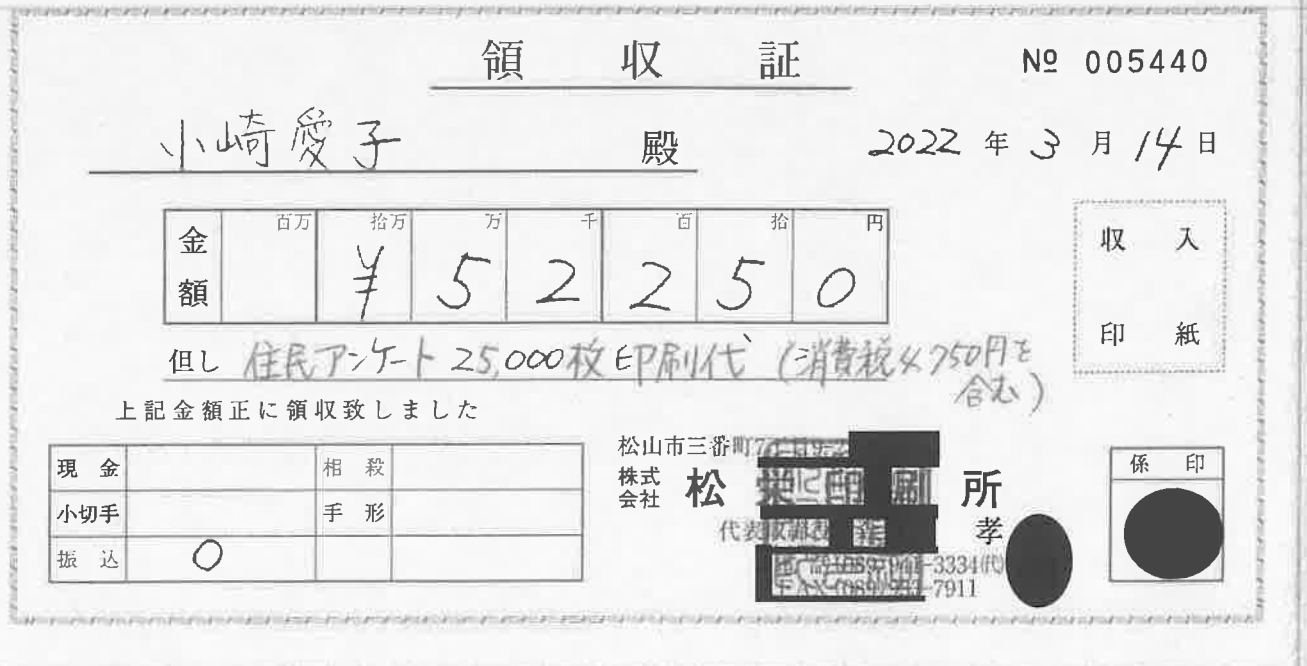 領収証
№ 005440
小崎愛子 殿
2022 年 3 月 14 日
金額 百万 拾万 万 千 百 拾 円
¥52250
収入
印紙
但し 住民アンケート 25,000枚 印刷代 (消費税4,750円を
含む)
上記金額正に領収致しました
現金 相殺
小切手 手形
振込 ○
松山市三番町7丁目9-2
株式会社 松栄印刷所
代表取締役 孝
係印
電話(089)941-3334(代)
FAX(089)
-7911